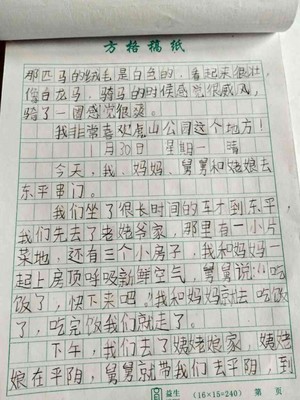 方格稿纸
那匹马的绒毛是白色的，看起来很壮，
像白龙马，骑马的时候感觉很威风，
骑了一圈感觉很爽。
我非常喜欢虎山公园这个地方！
1月30日 星期一 晴
今天，我、妈妈、舅舅和姥娘去
东平串门。
我们坐了很长时间的车才到东平
我们先去了老姥爷家，那里有一小片
菜地，还有三个小房子，我和妈妈一
起上房顶呼吸新鲜空气，舅舅说：“吃
饭了，快下来吧。”我和妈妈就去吃饭
了，吃完饭我们就走了。
下午，我们去了姨老娘家，姨姥
娘在平阴，舅舅就带我们去平阴，到
益生 (16×15=240) 第 页